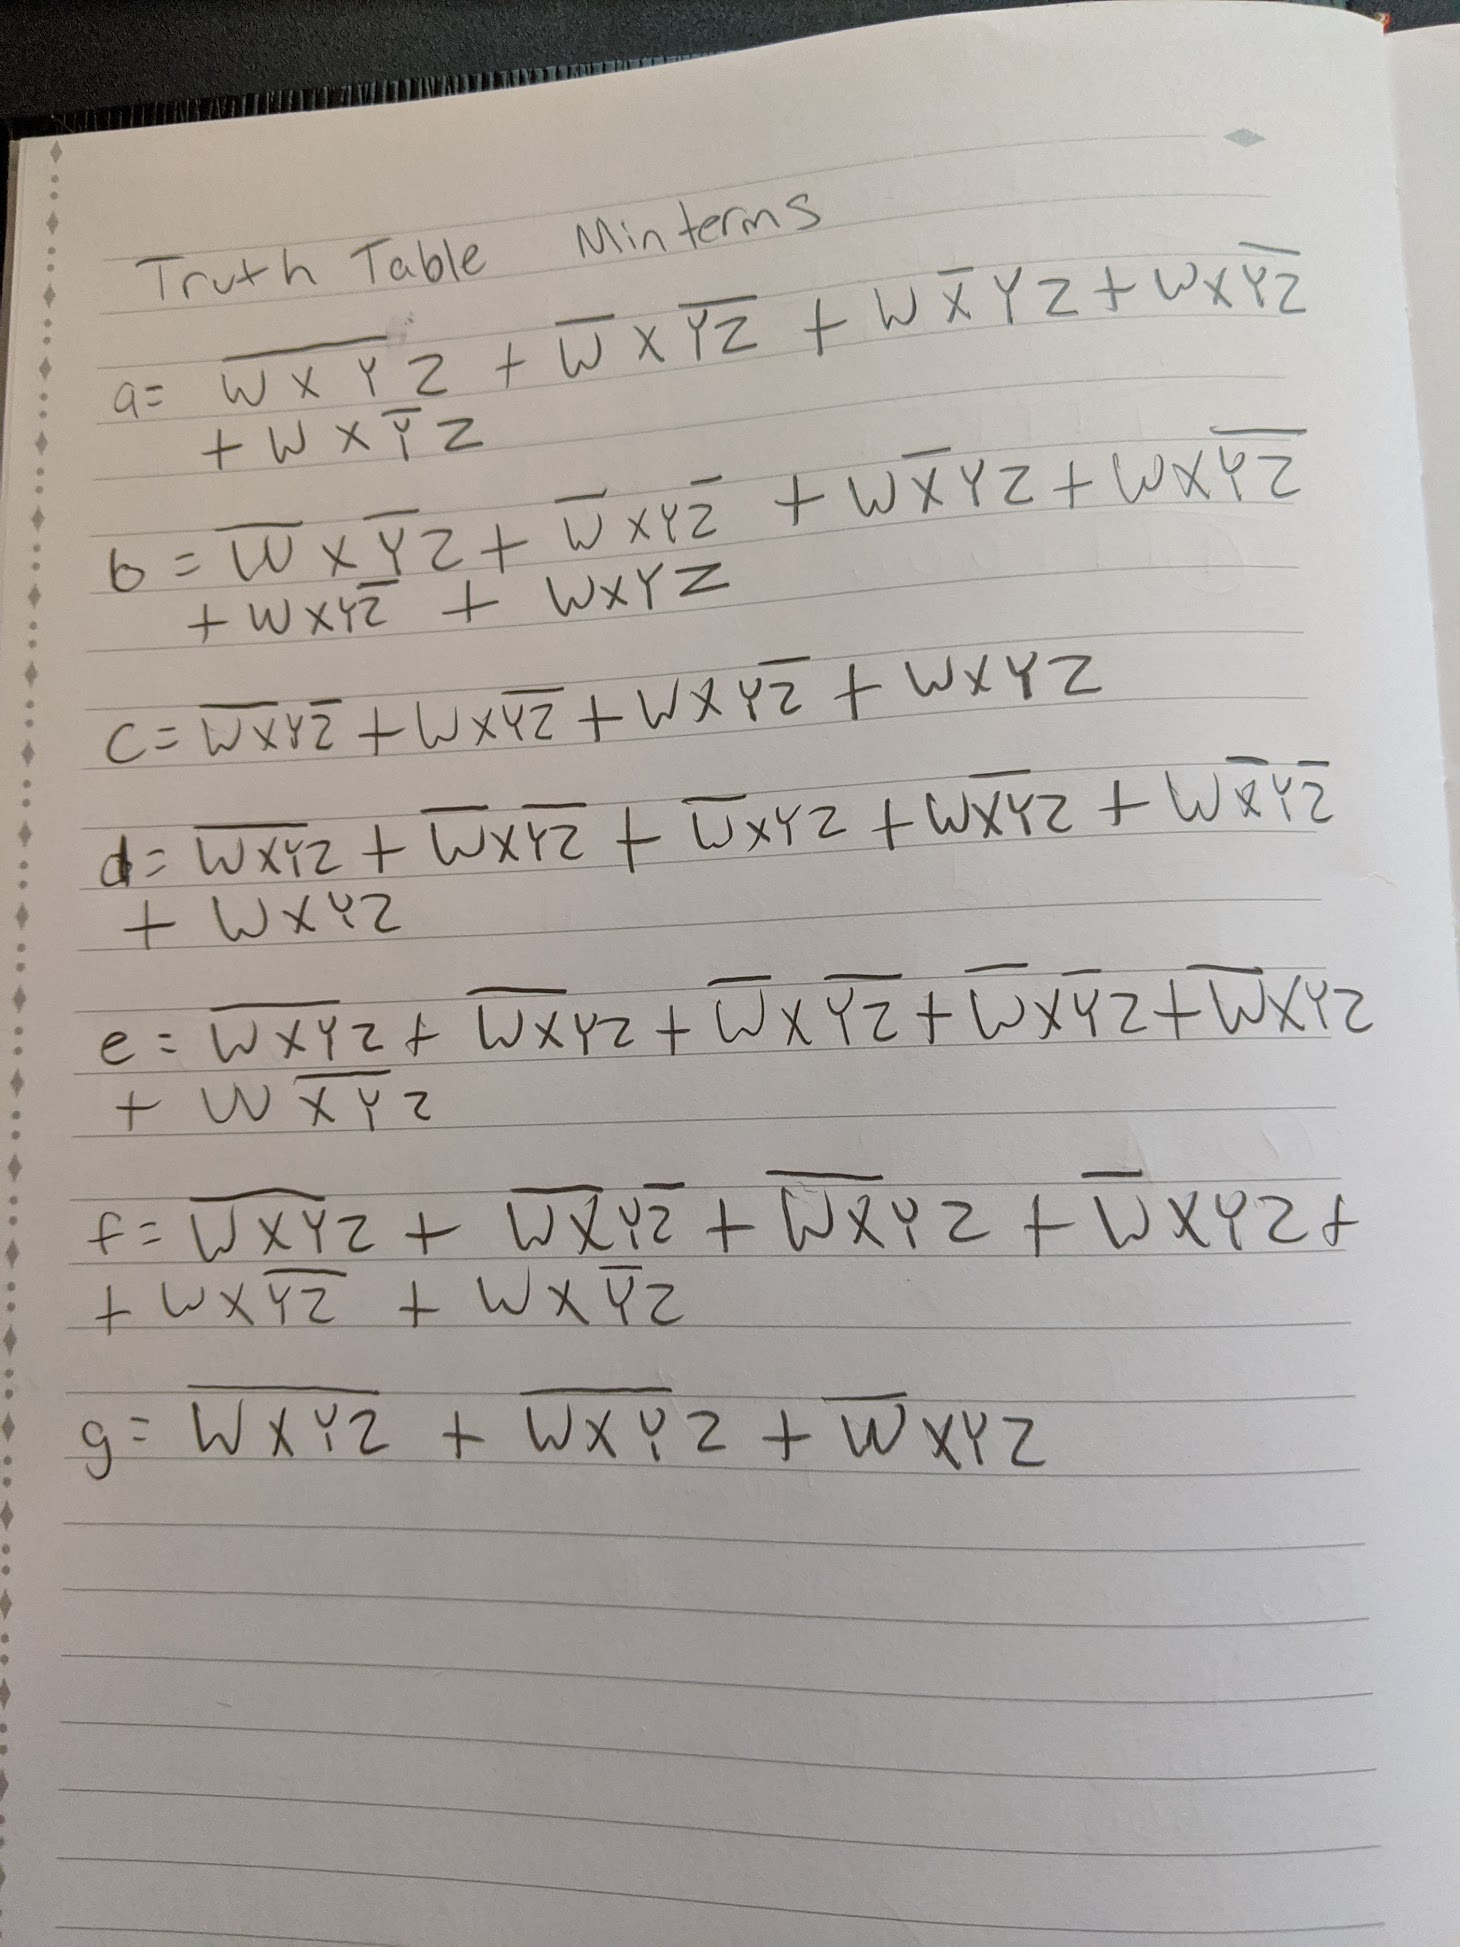 Truth Table Minterms
a= W̅X̅Y̅Z + W̅XY̅Z̅ + WX̅YZ + WXY̅Z̅
+ WXY̅Z
b = W̅XY̅Z + W̅XYZ̅ + WX̅YZ + WXY̅Z̅
+ WXYZ̅ + WXYZ
c = W̅X̅YZ̅ + WXY̅Z̅ + WXYZ̅ + WXYZ
d = W̅X̅Y̅Z + W̅XY̅Z̅ + W̅XYZ + WX̅Y̅Z + WX̅YZ̅
+ WXYZ
e = W̅X̅Y̅Z + W̅X̅YZ + W̅XY̅Z̅ + W̅XY̅Z + W̅XYZ
+ WX̅Y̅Z
f = W̅X̅Y̅Z + W̅X̅YZ̅ + W̅X̅YZ + W̅XYZ +
+ WXY̅Z̅ + WXY̅Z
g = W̅X̅Y̅Z̅ + W̅X̅Y̅Z + W̅XYZ